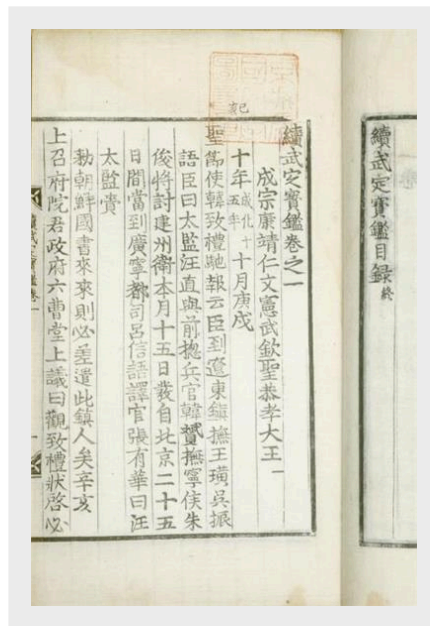 續武定寶鑑目録 終
己亥
續武定寶鑑卷之一
成宗康靖仁文憲武欽聖恭孝大王一
十年成化十五年十月庚戌
聖節使韓致禮馳報云臣到遼東鎮撫王璜吳振
語臣曰太監汪直與前摠兵官韓贇撫寧侯朱
俊將討建州衛本月十五日發自北京二十五
日間當到廣寧都司呂信語譯官張有華曰汪
太監賫
勅朝鮮國書來來則必差遣此鎮人矣辛亥
上召府院君政府六曹堂上議曰觀致禮狀啓必